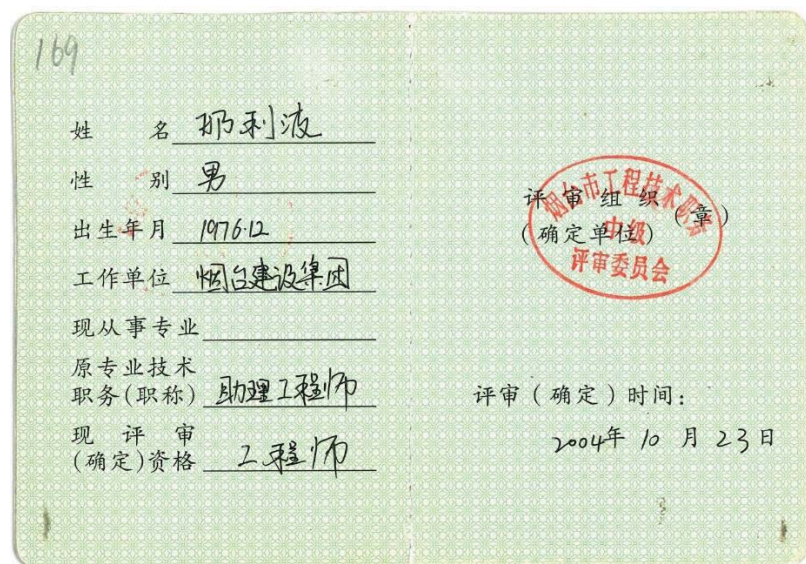 169
姓 名 邢利波
性 别 男
出生年月 1976.12
工作单位 烟台建设集团
现从事专业
原专业技术
职务(职称) 助理工程师
现 评 审
(确定)资格 工程师
评 审 组 织
(确定单位) (章)
烟台市工程技术职务
中级
评审委员会
评审(确定)时间:
2004年 10 月 23日